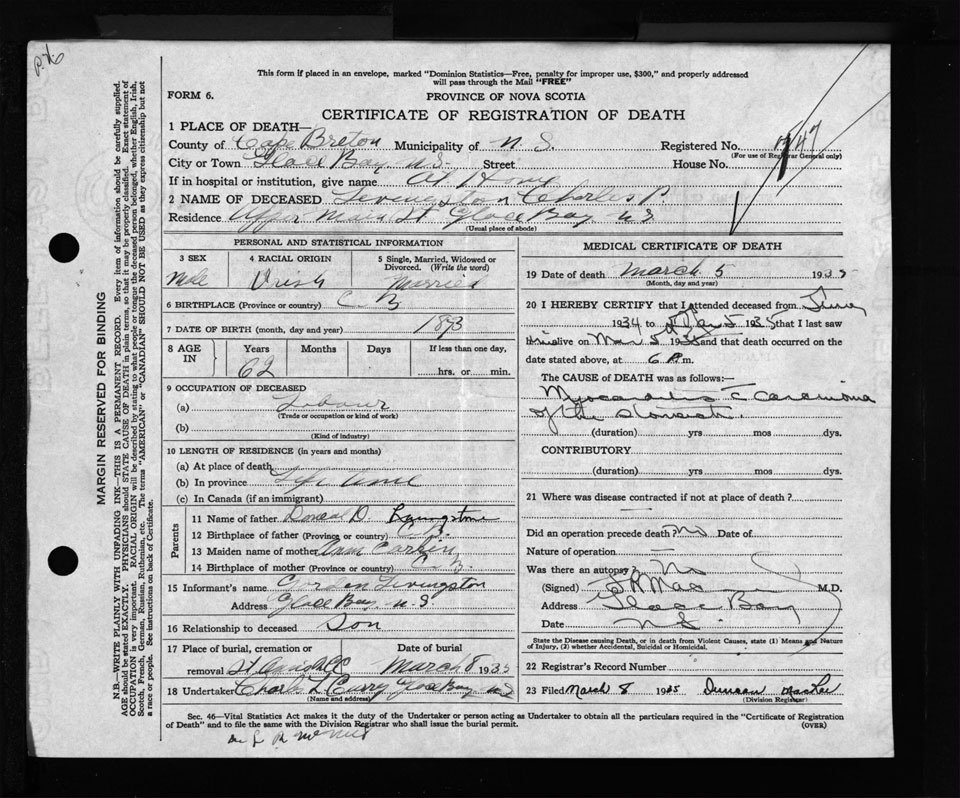 P.76
This form if placed in an envelope, marked "Dominion Statistics—Free, penalty for improper use, $300," and properly addressed
will pass through the Mail "FREE"
FORM 6.
PROVINCE OF NOVA SCOTIA
CERTIFICATE OF REGISTRATION OF DEATH
1 PLACE OF DEATH—
County of Cape Breton Municipality of N. S. Registered No. 747
(For use of Registrar General only)
City or Town Glace Bay N.S. Street House No.
If in hospital or institution, give name At Home
2 NAME OF DECEASED Livingston Charles P.
Residence Upper Main St Glace Bay N S
(Usual place of abode)
PERSONAL AND STATISTICAL INFORMATION
3 SEX
Male
4 RACIAL ORIGIN
Irish
5 Single, Married, Widowed or Divorced. (Write the word)
Married
6 BIRTHPLACE (Province or country) C B
7 DATE OF BIRTH (month, day and year) 1873
8 AGE IN
Years Months Days If less than one day,
62 hrs. or min.
9 OCCUPATION OF DECEASED
(a) Labour
(Trade or occupation or kind of work)
(b)
(Kind of industry)
10 LENGTH OF RESIDENCE (in years and months)
(a) At place of death
(b) In province Life time
(c) In Canada (if an immigrant)
Parents
11 Name of father Donald D. Livingstone
12 Birthplace of father (Province or country) C.B.
13 Maiden name of mother Ann
14 Birthplace of mother (Province or country) C. B.
15 Informant's name Gordon Livingston
Address Glace Bay N.S.
16 Relationship to deceased Son
17 Place of burial, cremation or Date of burial
removal March 8 1935
18 Undertaker Charles L Curry Glace Bay N S
(Name and address)
MEDICAL CERTIFICATE OF DEATH
19 Date of death March 5 1935
(Month, day and year)
20 I HEREBY CERTIFY that I attended deceased from June
1934 to 5 1935 that I last saw
him alive on Mar 5 1935 and that death occurred on the
date stated above, at 6 P.m.
The CAUSE of DEATH was as follows:—
Myocarditis c Carcinoma
of the Stomach.
(duration) yrs mos dys.
CONTRIBUTORY
(duration) yrs mos dys.
21 Where was disease contracted if not at place of death?
—
Did an operation precede death? No Date of
Nature of operation —
Was there an autopsy? No
(Signed) M.D.
Address Glace Bay
Date N.S.
State the Disease causing Death, or in death from Violent Causes, state (1) Means and Nature
of Injury, (2) whether Accidental, Suicidal or Homicidal.
22 Registrar's Record Number
23 Filed March 8 1935 Duncan
(Division Registrar)
Sec. 46—Vital Statistics Act makes it the duty of the Undertaker or person acting as Undertaker to obtain all the particulars required in the "Certificate of Registration
of Death" and to file the same with the Division Registrar who shall issue the burial permit.
(OVER)
MARGIN RESERVED FOR BINDING
N.B.—WRITE PLAINLY WITH UNFADING INK—THIS IS A PERMANENT RECORD. Every item of information should be carefully supplied.
AGE should be stated EXACTLY. PHYSICIANS should STATE CAUSE OF DEATH in plain terms, so that it may be properly classified. Exact statement of
OCCUPATION is very important. RACIAL ORIGIN will be described by stating to what people or tongue the deceased person belonged, whether English, Irish,
Scotch, French, German, Russian, Ruthenian, etc. The terms "AMERICAN" or "CANADIAN" SHOULD NOT BE USED as they express citizenship but not
a race or people. See instructions on back of Certificate.